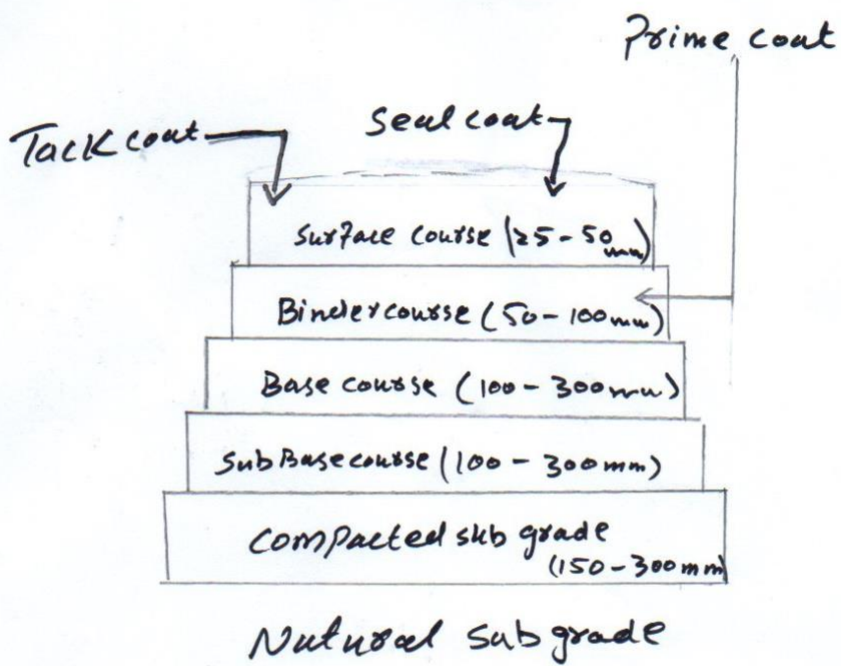 Prime coat
Seal coat
Tack coat
Surface course (25-50mm)
Binder course (50-100mm)
Base course (100-300mm)
Sub Base course (100-300mm)
Compacted sub grade
(150-300mm)
Natural sub grade